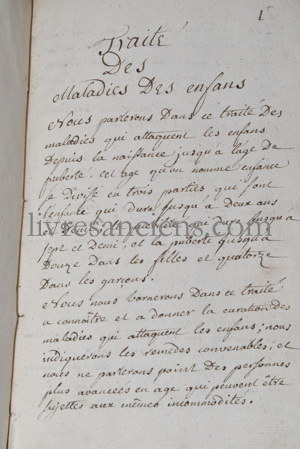 1
Traité
Des
Maladies Des enfans
Nous parlerons Dans ce traité Des
maladies qui attaquent les enfans
Depuis la naissance jusqu'à l'age de
puberté. cet age qu'on nomme enfance
se Divise en trois parties que sont
l'enfance qui dure jusqu'à deux ans
qui dure jusqu'à
sept et Demi, et la puberté jusqu'à
Douze Dans les filles et quatorze
Dans les garçons.
Nous nous bornerons Dans ce traité
a connoître et a donner la curation des
maladies qui attaquent les enfans; nous
indiquerons les remedes convenables; et
nous ne parlerons point Des personnes
plus avancées en age qui peuvent être
sujettes aux mêmes incommodités.
livresanciens.com